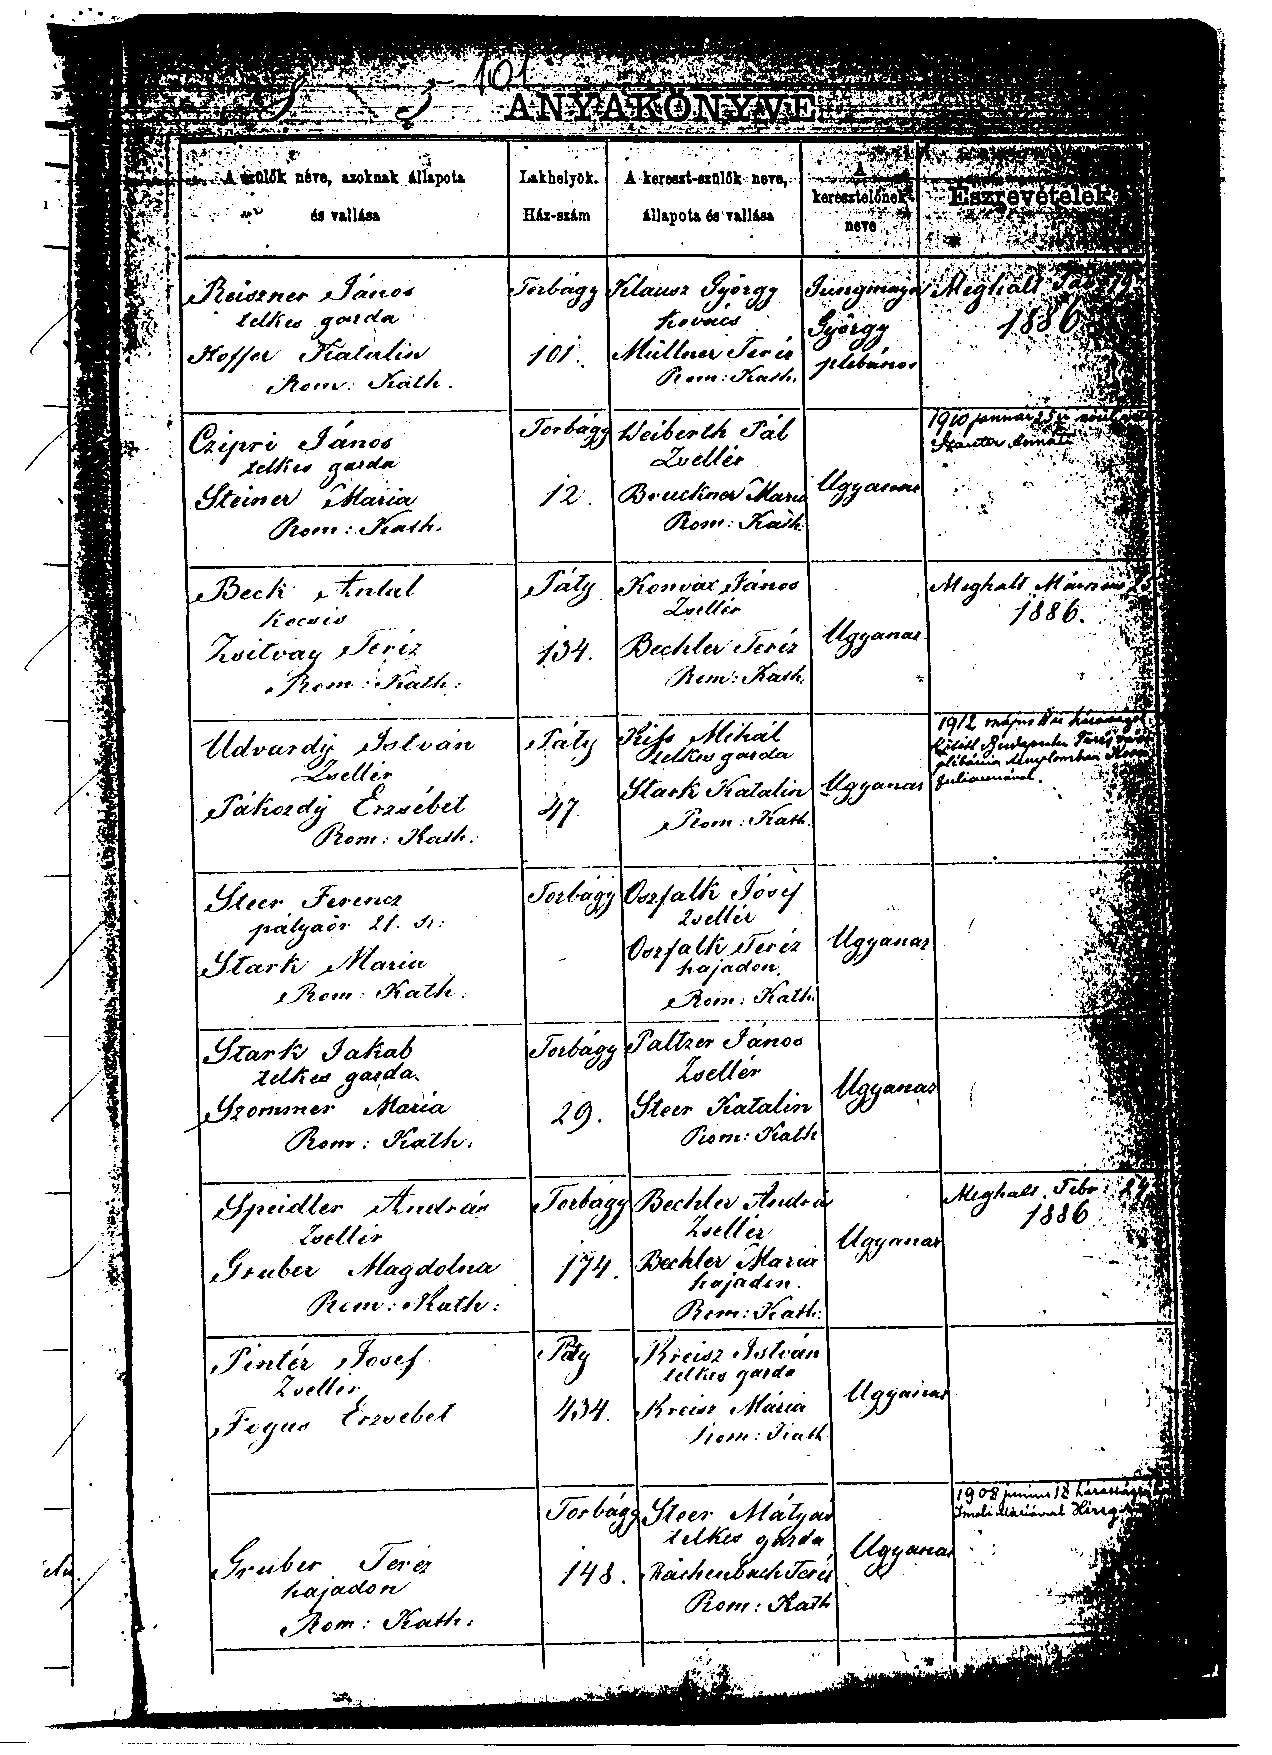 101
ANYAKÖNYVE
A szülők néve, azoknak állapota
és vallása
Lakhelyök.
Ház-szám
A kereszt-szülők neve,
állapota és vallása
A
keresztelőnek
neve
Észrevételek
Reiszner János
telkes gazda
Hoffer Katalin
Rom: Kath.
Torbágy
101.
Klausz György
Kovács
Müllner Teréz
Rom: Kath.
Jungmajer
György
plébános
Meghalt
1886
Czipri János
telkes gazda
Steiner Maria
Rom: Kath.
Torbágy
12.
Weiberth Pál
Zsellér
Bruckner Maria
Rom: Kath.
Ugyanaz
1910 januar
Beck Antal
Kocsis
Zsitvay Teréz
Rom: Kath:
Páty
134.
János
Zsellér
Bechler Teréz
Rom: Kath.
Ugyanaz
Meghalt
1886.
Udvardy István
Zsellér
Pákozdy Erzsébet
Rom: Kath:
Páty
47.
Kiss Mihál
telkes gazda
Stark Katalin
Rom: Kath.
Ugyanaz
1912 május
Julianával.
Steer Ferencz
pályaőr 21. sz:
Stark Maria
Rom: Kath.
Torbágy
Oszfalk József
Zsellér
Oszfalk Teréz
hajadon.
Rom: Kath.
Ugyanaz
Stark Jakab
telkes gazda
Szommer Maria
Rom: Kath.
Torbágy
29.
Paltzer János
Zsellér
Steer Katalin
Rom: Kath
Ugyanaz
Speidler András
Zsellér
Gruber Magdolna
Rom: Kath:
Torbágy
174.
Bechler András
Zsellér
Bechler Maria
hajadon.
Rom: Kath:
Ugyanaz
Meghalt. Febr.
1886
Pintér Josef
Zsellér
Erzsebet
Páty
434.
Kreisz István
telkes gazda
Kreisz Mária
Rom: Kath
Ugyanaz
Gruber Teréz
hajadon
Rom: Kath:
Torbágy
148.
Steer Mátyás
telkes gazda
Teréz
Rom: Kath
Ugyanaz
1908 junius 18